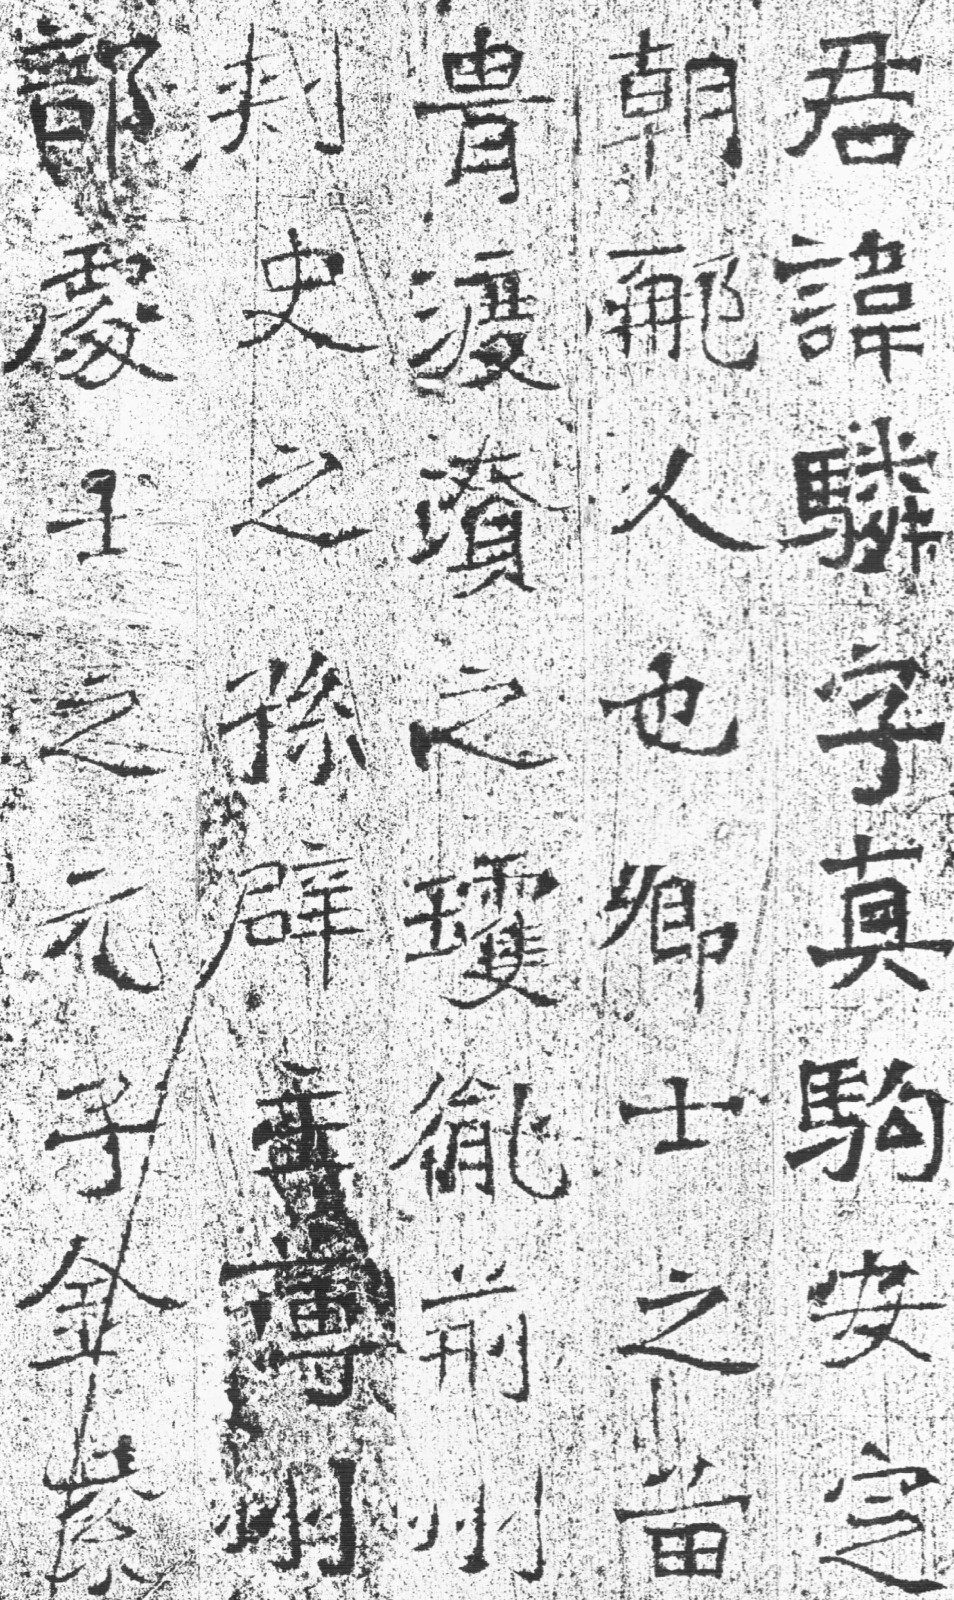 君諱驎字真駒安定
朝那人也卿士之苗
胄渡遼之瓊胤荊州
刺史之孫辟主簿州
都處士之元子金紫